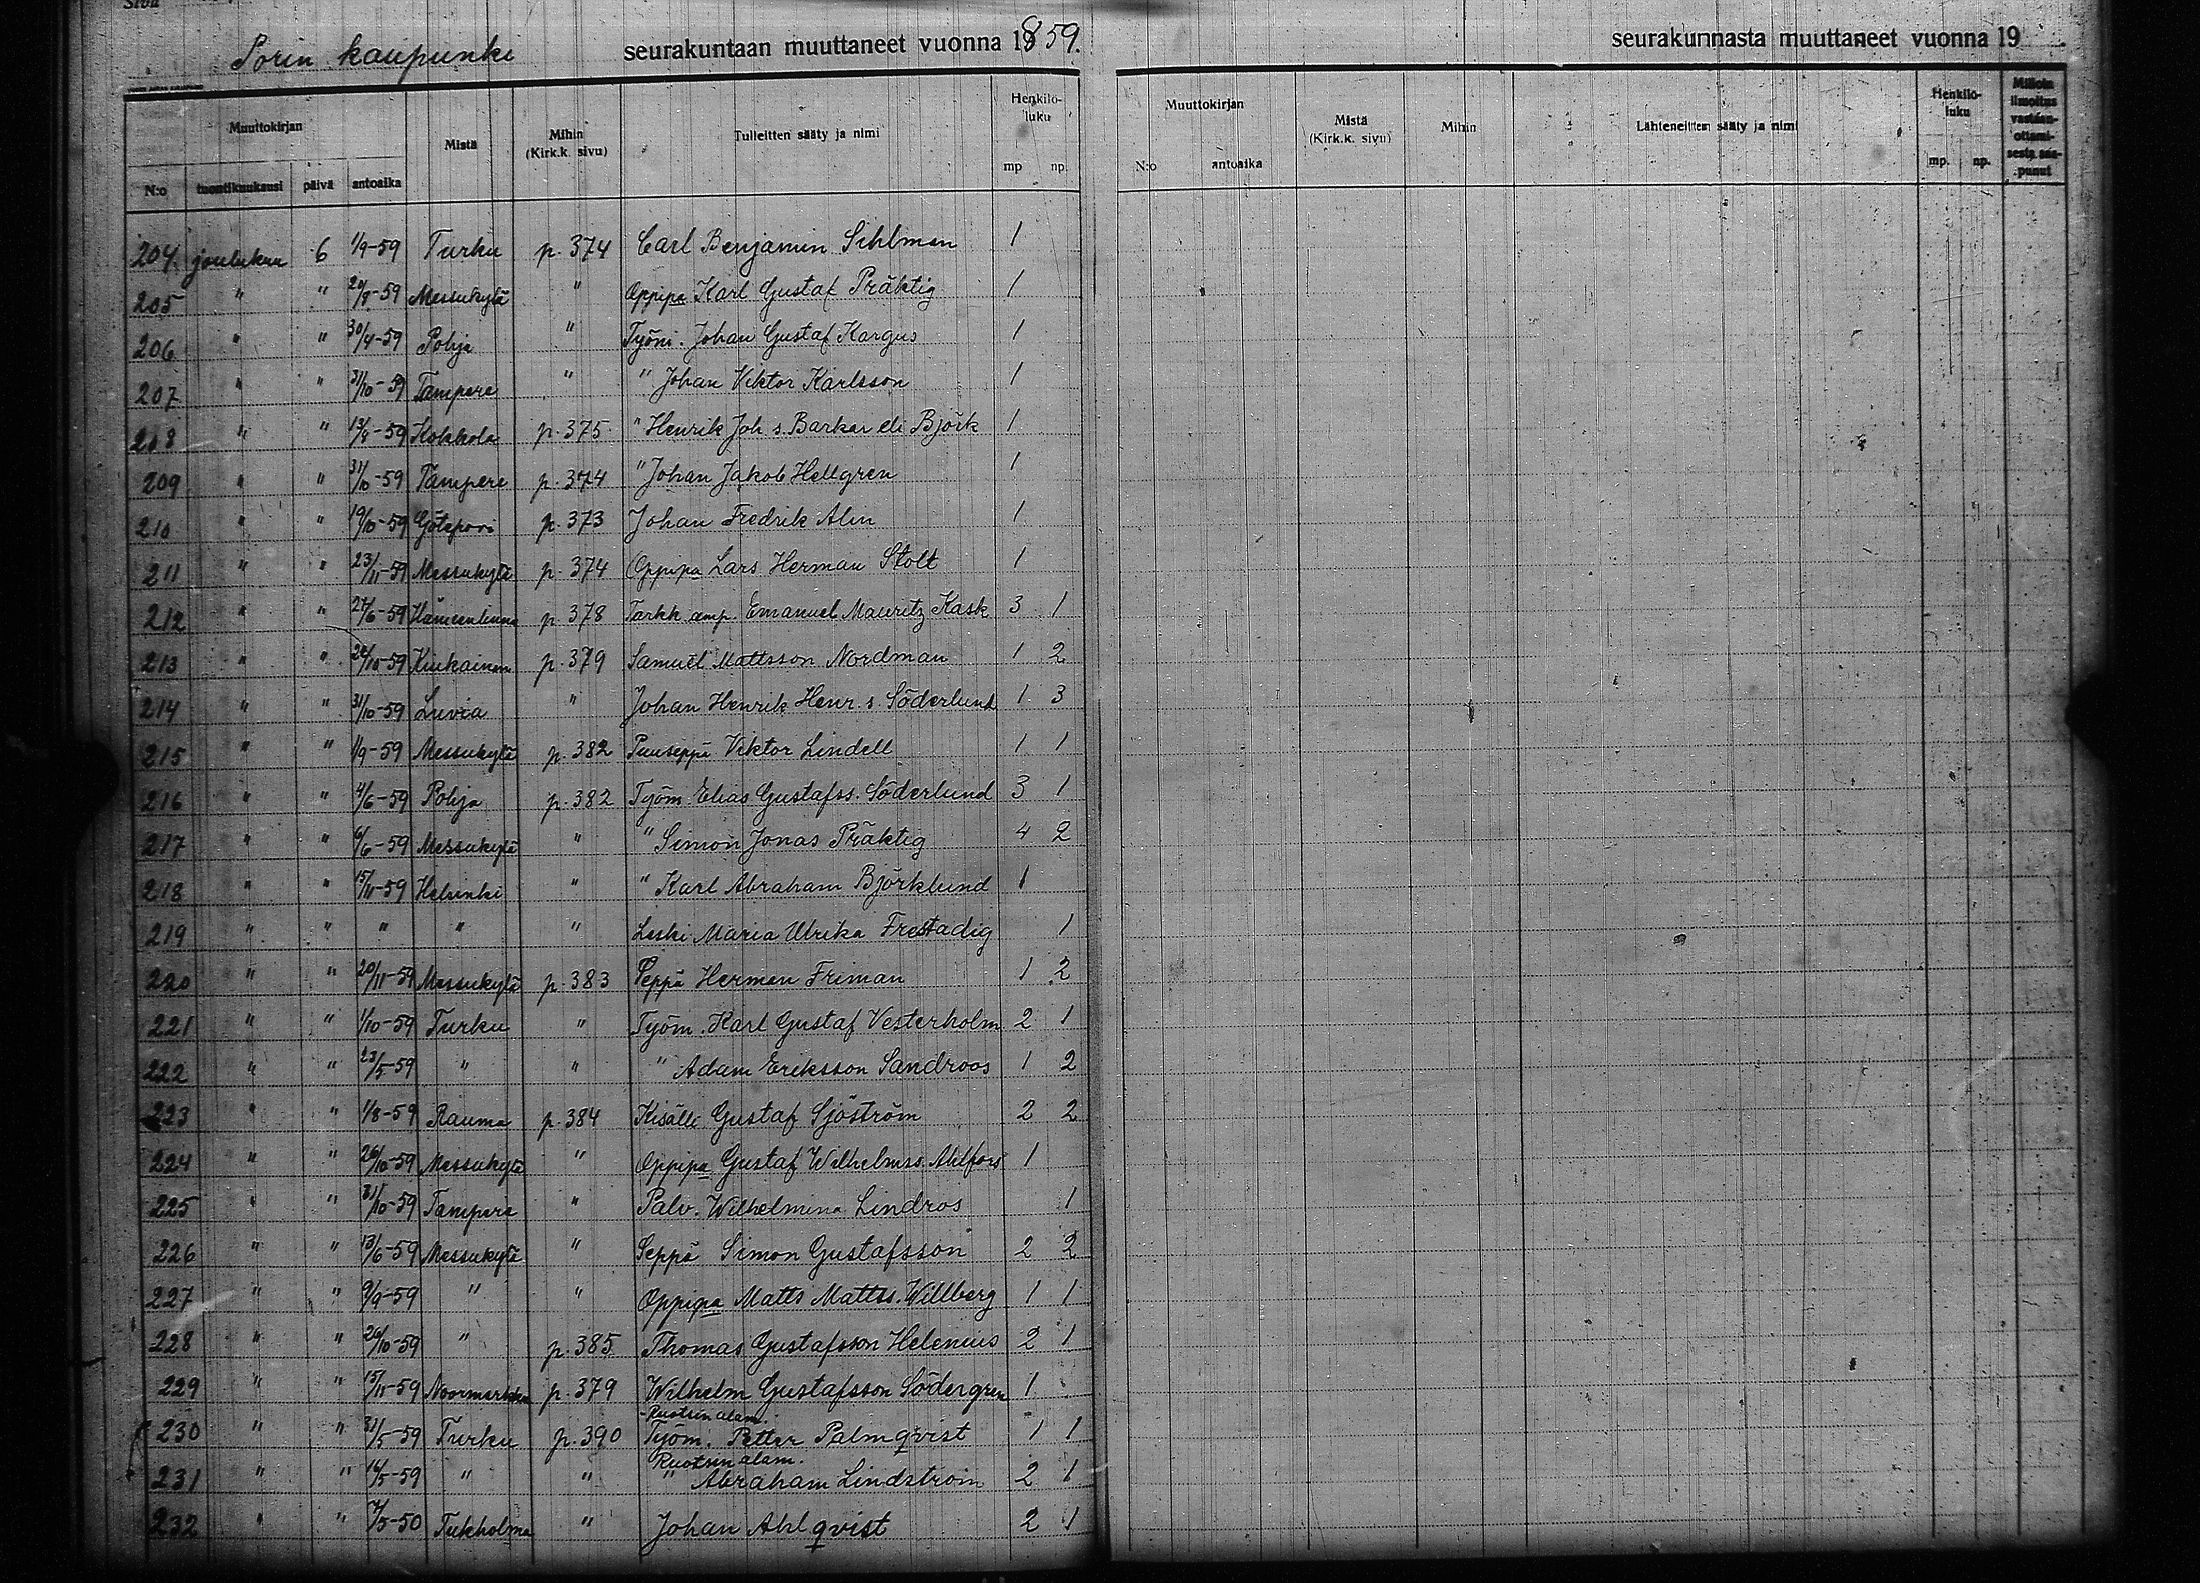 Porin kaupunki seurakuntaan muuttaneet vuonna 1859.
Muuttokirjan Mistä Mihin (Kirk.k. sivu) Tulleitten sääty ja nimi Henkilö-luku
N:o tuontikuukausi päivä antoaika mp np.
204. joulukuu 6 1/9-59 Turku p. 374 Carl Benjamin Sihlman 1
205 " " 20/8-59 Messukylä " Oppipa Karl Gustaf Präktig 1
206 " " 30/4-59 Pohja " Työm. Johan Gustaf Kargus 1
207 " " 31/10-59 Tampere " " Johan Viktor Karlsson 1
208 " " 13/8-59 Kokkola p. 375 " Henrik Joh. s. Barkar eli Björk 1
209 " " 31/10-59 Tampere p. 374 " Johan Jakob Hellgren 1
210 " " 19/10-59 Götepori p. 373 Johan Fredrik Alin 1
211 " " 23/11-59 Messukylä p. 374 Oppipa Lars Herman Stolt 1
212 " " 27/6-59 Hämeenlinna p. 378 Tarkk. amp. Emanuel Mauritz Kask 3 1
213 " " 24/10-59 Kiukainen p. 379 Samuel Mattsson Nordman 1 2
214 " " 31/10-59 Luvia " Johan Henrik Henr. s. Söderlund 1 3
215 " " 1/9-59 Messukylä p. 382 Puuseppä Viktor Lindell 1 1
216 " " 4/6-59 Pohja p. 382 Työm. Elias Gustafss. Söderlund 3 1
217 " " 6/6-59 Messukylä " " Simon Jonas Präktig 4 2
218 " " 15/11-59 Helsinki " " Karl Abraham Björklund 1
219 " " " " " Leski Maria Ulrika Frestadig 1
220 " " 20/11-59 Messukylä p. 383 Seppä Herman Friman 1 2
221 " " 1/10-59 Turku " Työm. Karl Gustaf Vesterholm 2 1
222 " " 23/5-59 " " " Adam Eriksson Sandroos 1 2
223 " " 1/8-59 Rauma p. 384 Kisälli Gustaf Sjöström 2 2
224 " " 26/10-59 Messukylä " Oppipa Gustaf Wilhelmss. Ahlfors 1
225 " " 31/10-59 Tampere " Palv. Wilhelmina Lindros 1
226 " " 13/6-59 Messukylä " Seppä Simon Gustafsson 2 2
227 " " 9/9-59 " " Oppipa Matts Mattss. Willberg 1 1
228 " " 26/10-59 " p. 385 Thomas Gustafsson Helenius 2 1
229 " " 15/11-59 Noormarkku p. 379 Wilhelm Gustafsson Södergren 1
Ruotsin alam.
230 " " 31/5-59 Turku p. 390 Työm. Petter Palmqvist 1 1
Ruotsin alam.
231 " " 16/5-59 " " " Abraham Lindström 2 1
232 " " 7/5-50 Tukholma " Johan Ahlqvist 2 1
seurakunnasta muuttaneet vuonna 19
Muuttokirjan Mistä (Kirk.k. sivu) Mihin Lähteneitten sääty ja nimi Henkilö-luku Milloin ilmoitus vastaan-ottami-sesta saa-punut
N:o antoaika mp. np.